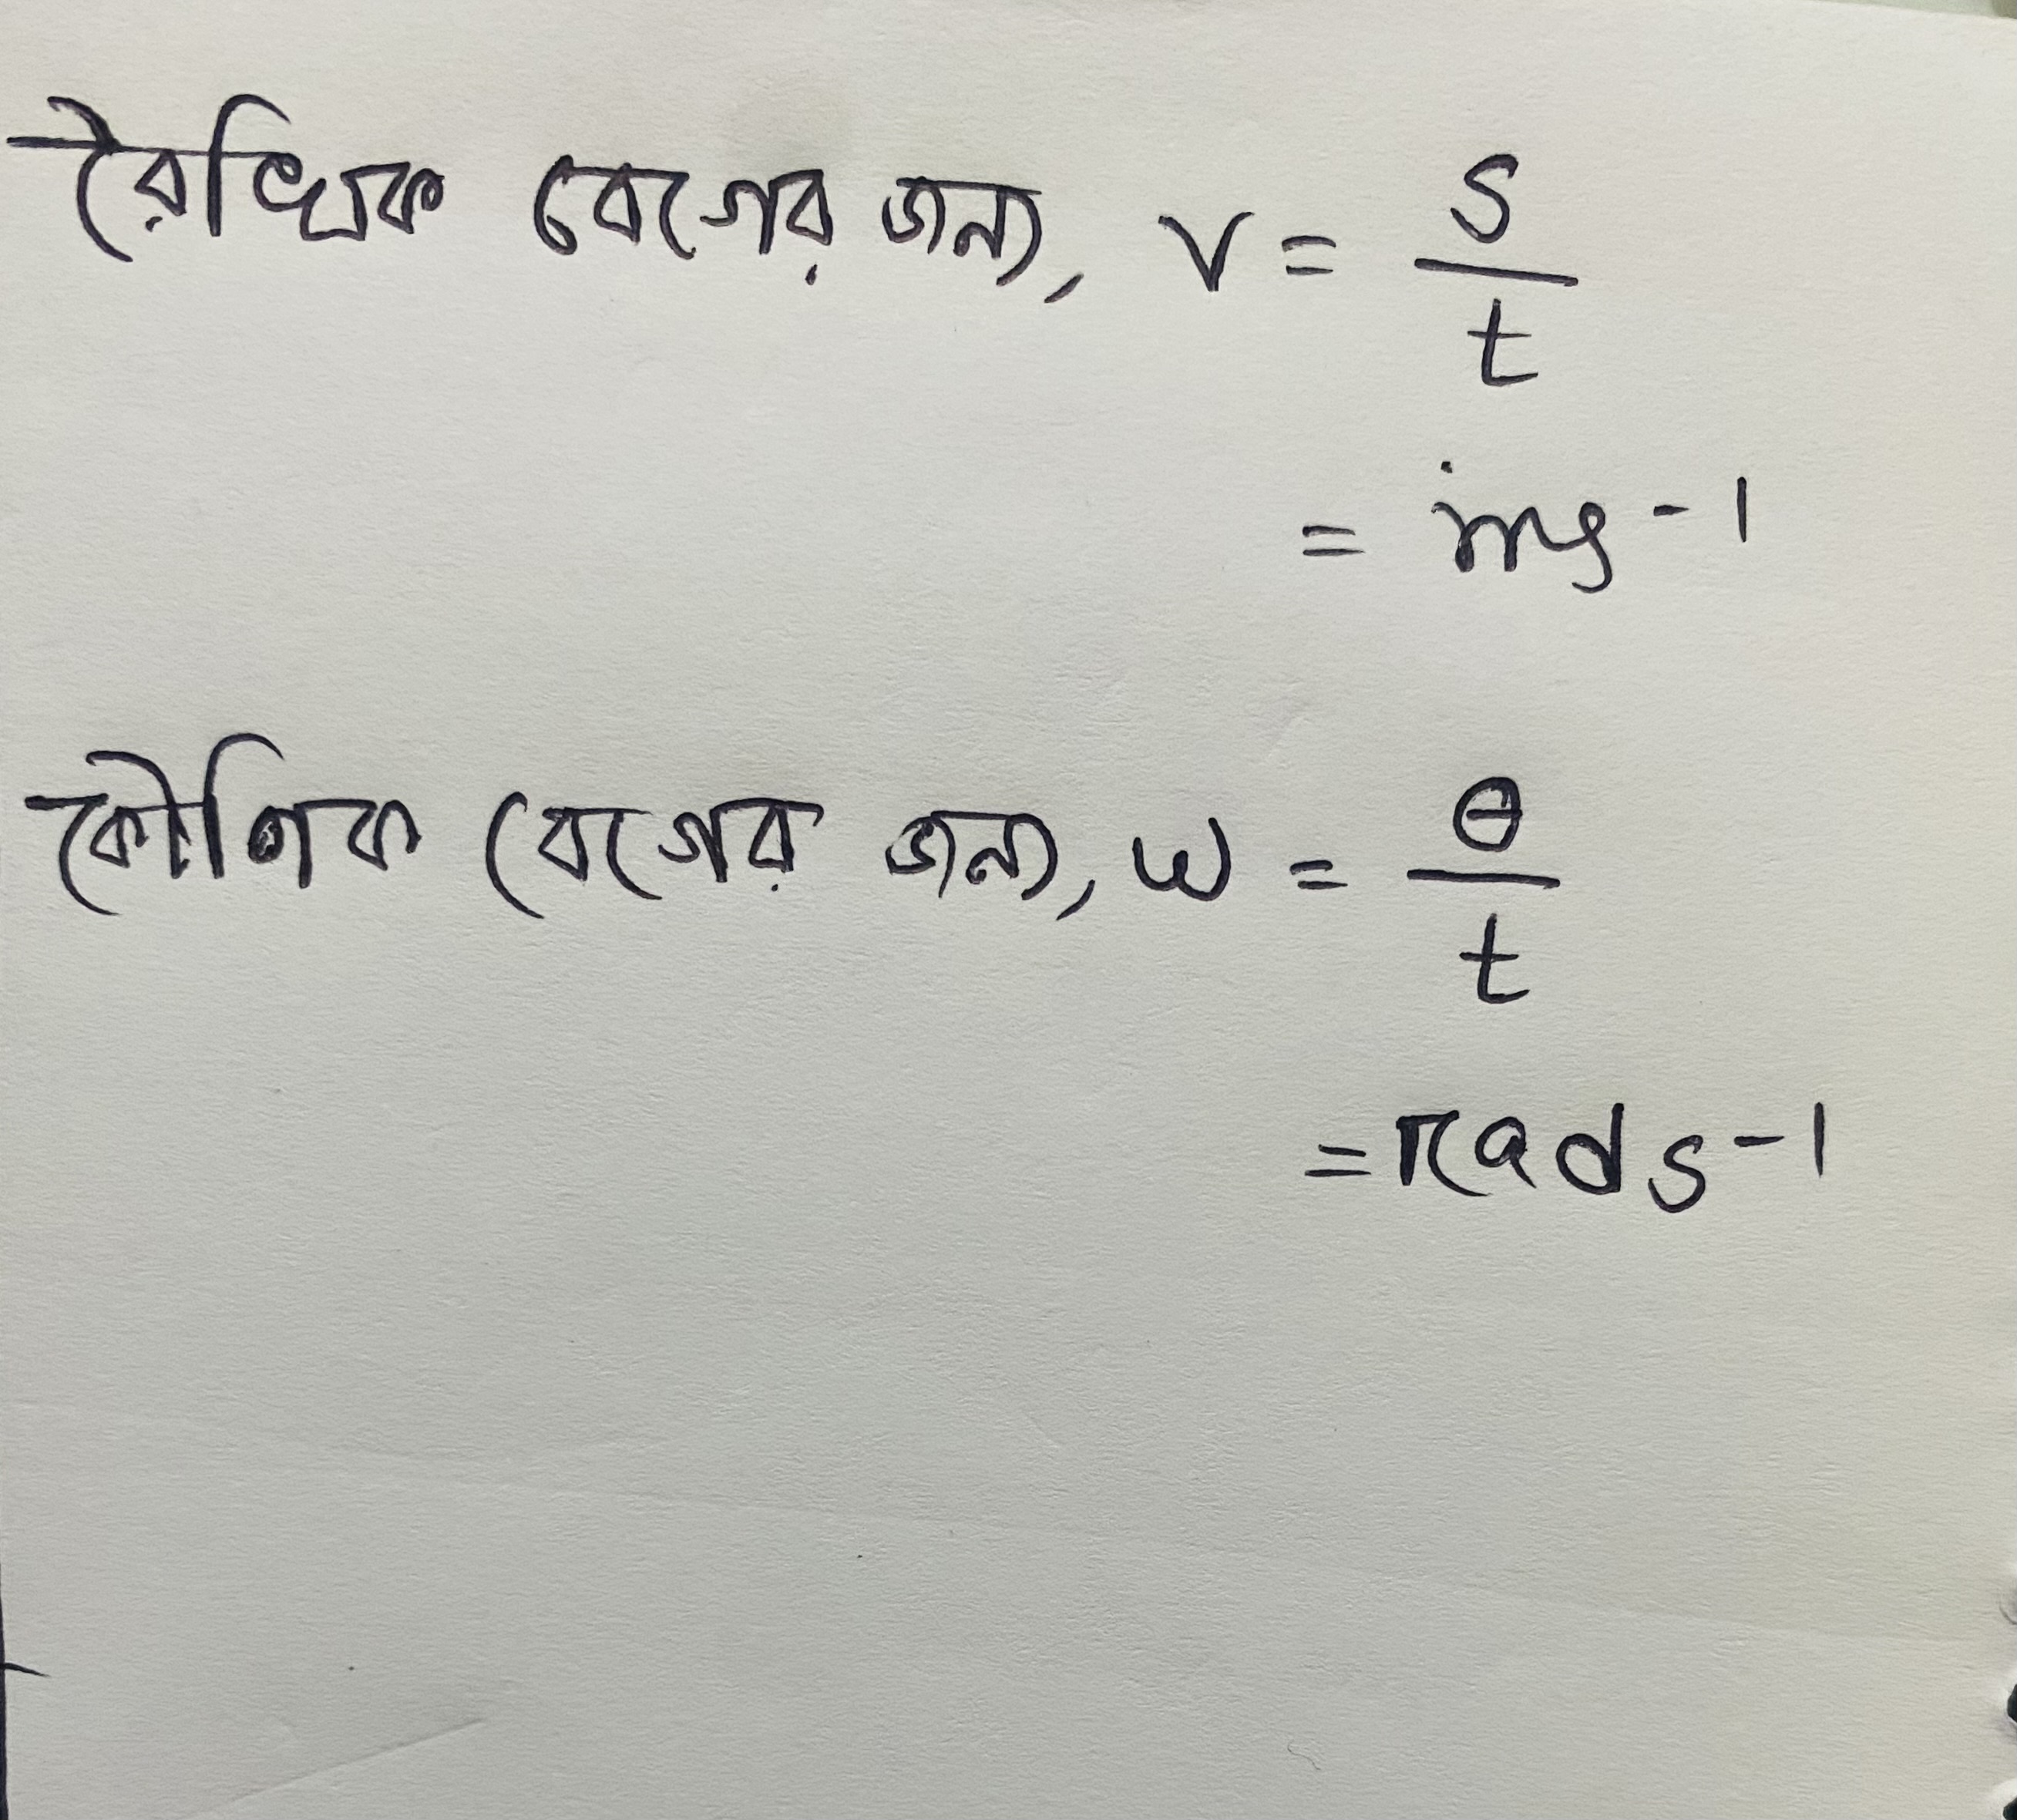 রৈখিক বেগের জন্য, v = s/t
= ms⁻¹
কৌণিক বেগের জন্য, ω = θ/t
= rad s⁻¹